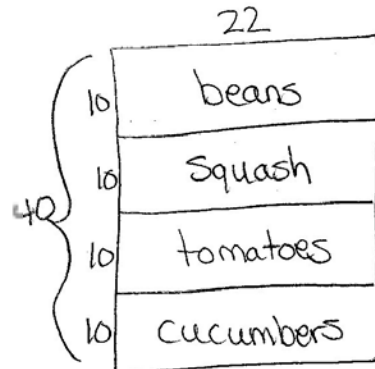 22
10 beans
10 squash
40
10 tomatoes
10 cucumbers